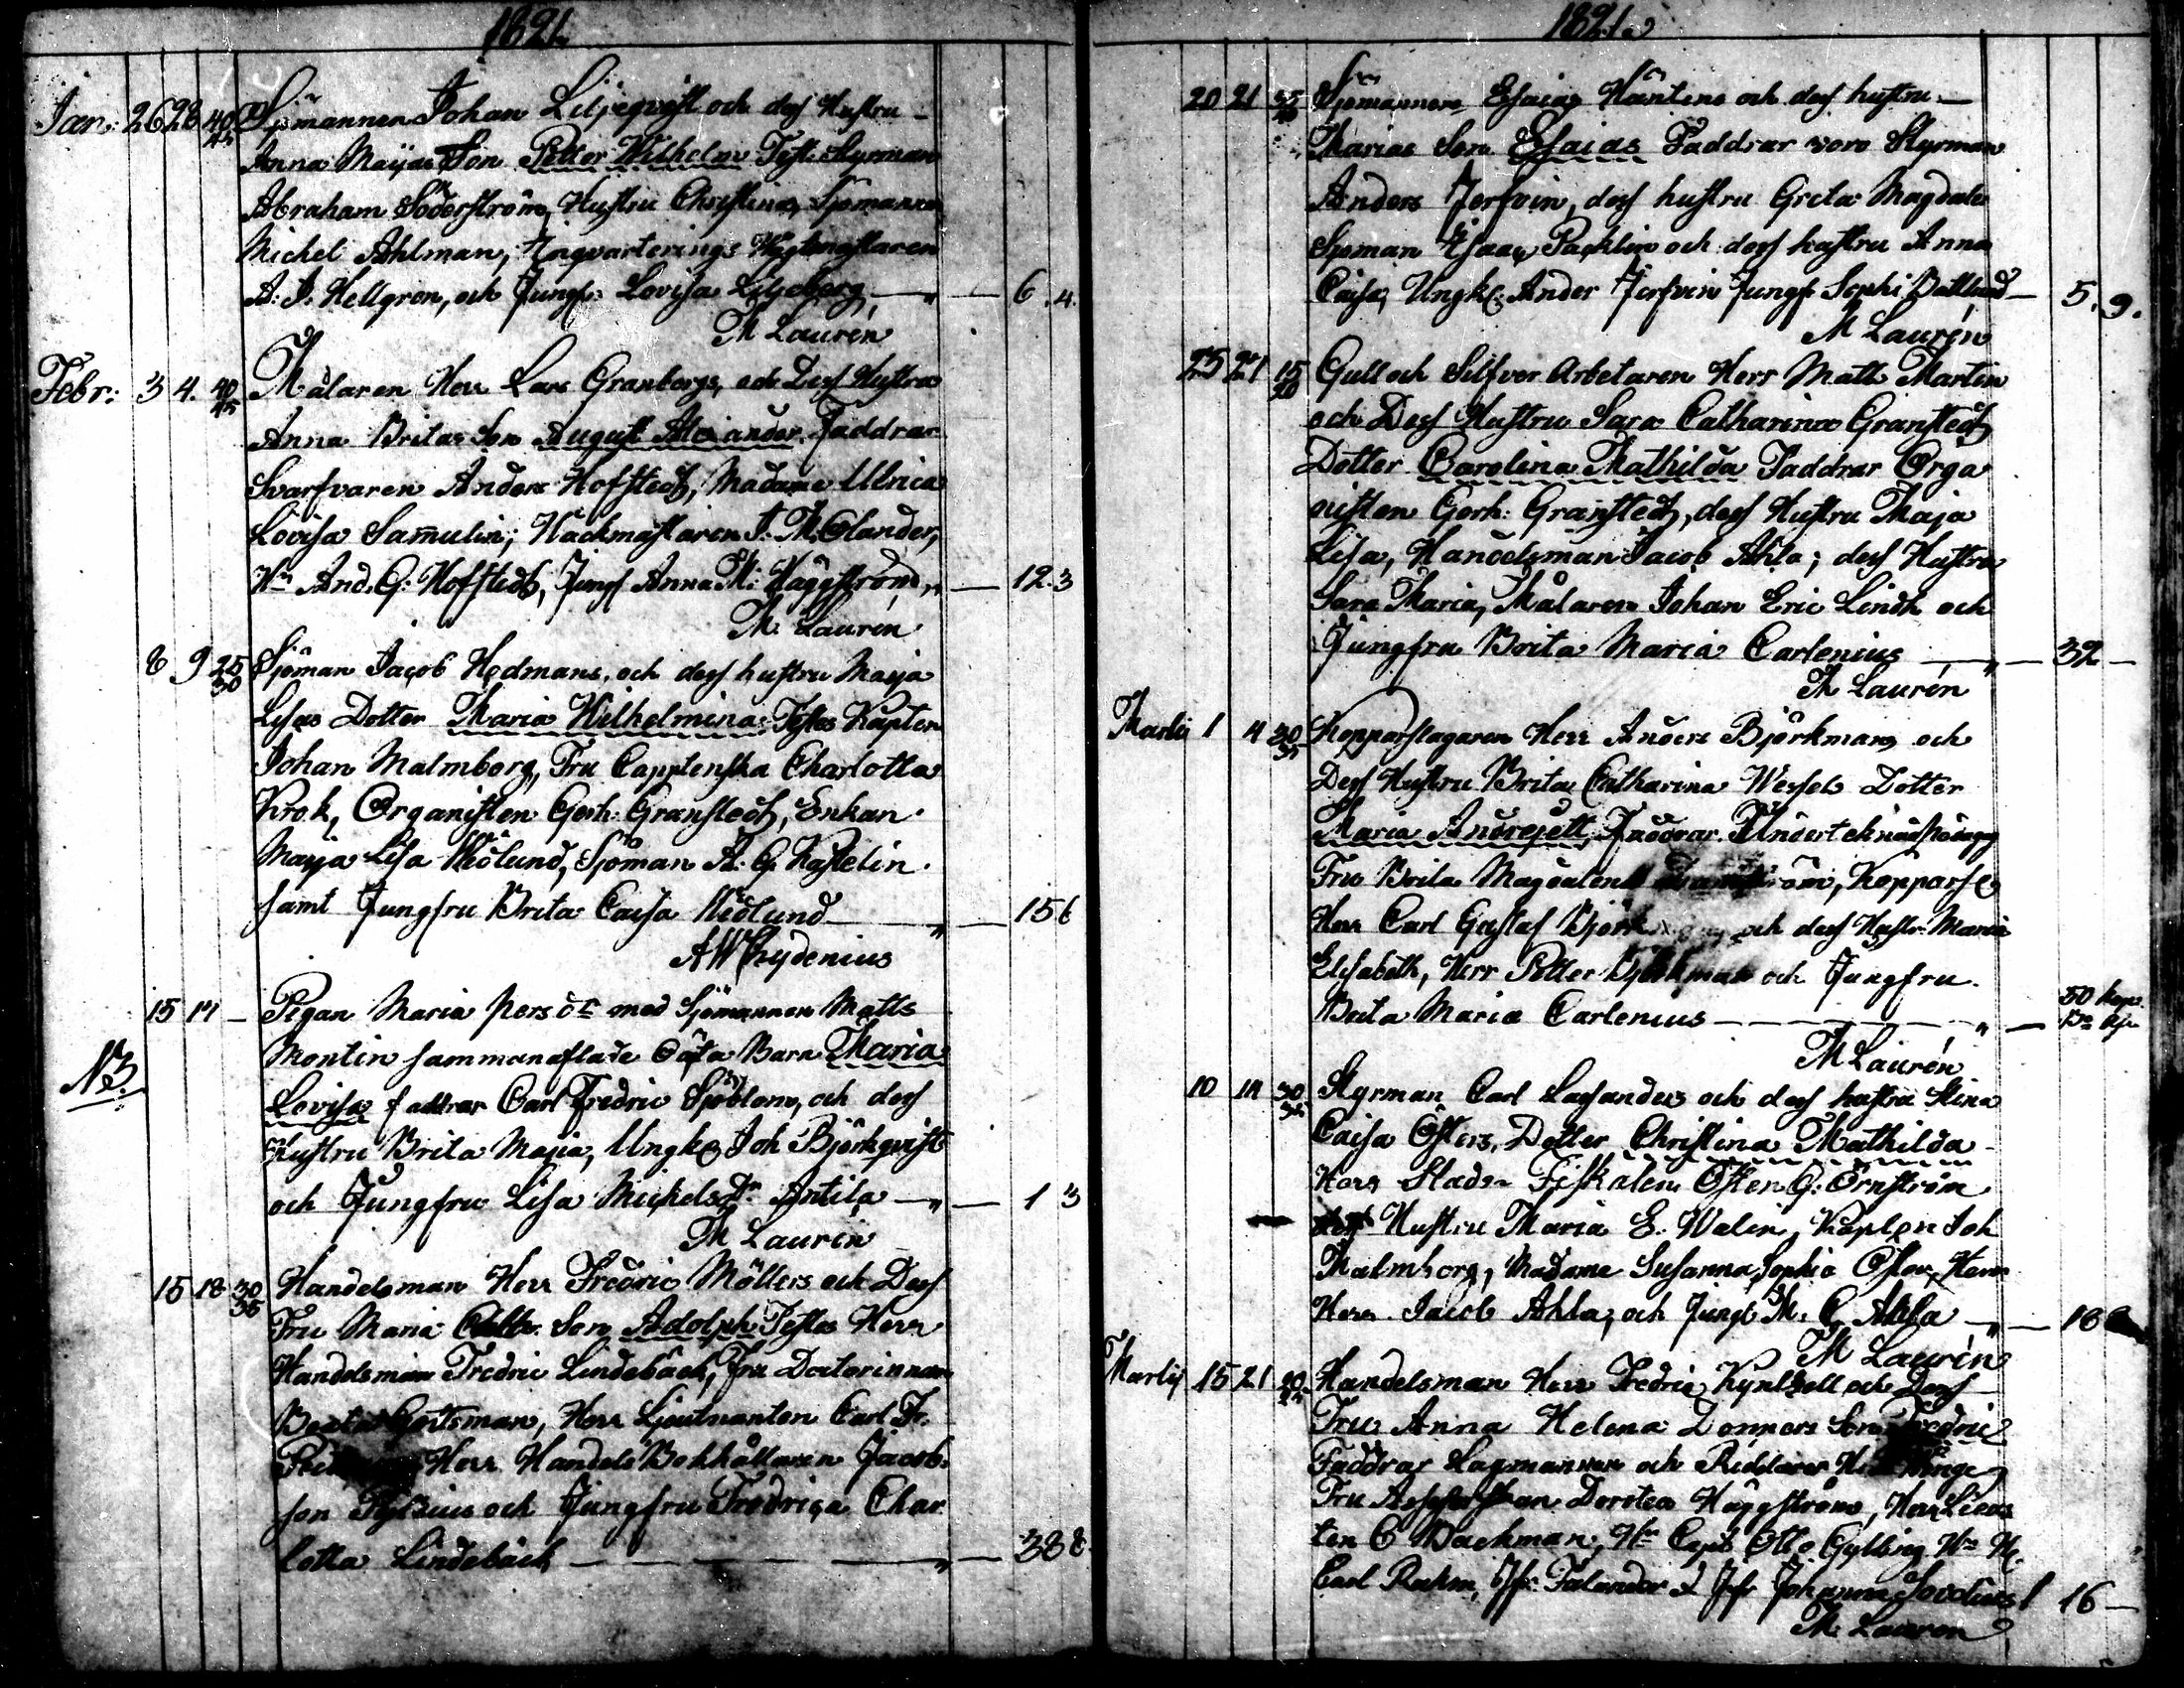 1821
Jan: 26 28 40/45 Sjömannen Johan Liljeqvist och dess Hustru
Anna Majas Son Petter Wilhelm Test: Styrman
Abraham Söderström, Hustru Christina, Sjömannen
Michel Ahlman, Inqvarterings
A. J. Hellgren, och Jungfr: Lovisa Liljeberg 6. 4.
M Laurén
Febr: 3 4. 40/45 Målaren Herr Lars Granbergs, och Dess Hustru
Anna Britas Son August Alexander Faddrar
Svarfvaren Anders Hofstedt, Madame Ulrica
Lovisa Samulin; Hackmästaren J. M. Olander,
Hr And. G: Hofstedt, Jungf Anna M: Häggström 12. 3
M. Laurén
8 9 25/30 Sjöman Jacob Hedmans, och dess hustru Maja
Lisas Dotter Maria Wilhelmina: Testes Kapten
Johan Malmborg, Fru Captenska Charlotta
Krok, Organisten Gerh: Granstedt, Enkan
Maja Lisa Widlund, Sjöman A. G. Kastelin
samt Jungfru Brita Caisa Widlund 15 6
AW Chydenius
15 17 - Pigan Maria Persdr med Sjömannen Matts
NB. Montin sammanaflade oäkta Barn Maria
Lovisa faddrar Carl Fredric Sjöblom, och dess
Hustru Brita Maria, Ungk: Joh Björkqvist
och Jungfru Lisa Mickelsdr Antila 1 3
M Laurén
15 18 30/35 Handelsman Herr Fredric Möllers och Dess
Fru Maria Cath. Son Adolph Testes Herr
Handelsman Fredric Lindebäck, Fru Doctorinnan
Beata Hertsman, Herr Lieutnanten Carl Fr.
Herr Handels Bokhållaren Jacob
son och Jungfru Fredrica Char
lotta Lindebäck 38 8
1821
20 21 35/40 Sjömannen Esaias Häntins och dess hustru
Marias Son Esaias Faddrar voro Styrman
Anders Jerfvin, dess hustru Greta Magdale
Sjöman Isaac Packlin och dess hustru Anna
Caisa, Ungk: Ander Jerfvin Jungf Sophi 5. 9.
M Laurén
23 24 15/20 Gull och Silfver Arbetaren Herr Matts Martin
och Dess Hustru Sara Catharina Granstedt
Dotter Carolina Mathilda Faddrar Orga
nisten Gerh: Granstedt, dess Hustru Maja
Lisa, Handelsman Jacob Ahla; dess Hustru
Sara Maria, Målaren Johan Eric Lindh och
Jungfru Brita Maria Carlenius 32 -
M Laurén
Martii 1 4 30/35 Kopparslagaren Herr Anders Björkman och
Dess Hustru Brita Catharina Wessels Dotter
Maria Andrejett, Faddrar
Fru Brita Magdalena Kopparsl
Herr Carl Gustaf Björkman och dess Hustr: Maria
Elisabeth, Herr Petter Björkman och Jungfru
Brita Maria Carlenius 50 kop.
M Laurén
10 14 30/35 Styrman Carl Lassanders och dess hustru Stina
Caisa Östers, Dotter Christina Mathilda
Herr Stads Fiskalen Östen G: Örnström
dess Hustru Maria E. Walin, Kapten Joh
Malmborg, Madame Susanna Sophia Öster,
Herr Jacob Ahla, och Jungf M. C. Ahla 18
M Laurén
Martij 15 21 20/25 Handelsman Herr Fredric Kyntzell och Dess
Fru Anna Helena Donners Son Fredric
Faddrar Lagmannen och Riddaren H
Fru Dorotea Häggström, Herr Lieut
ten C Backman, Hr Capt. Otto Gylling, Hr
Carl Rahm, Jfr. Jfr Johanna 1 16 -
M. Laurén